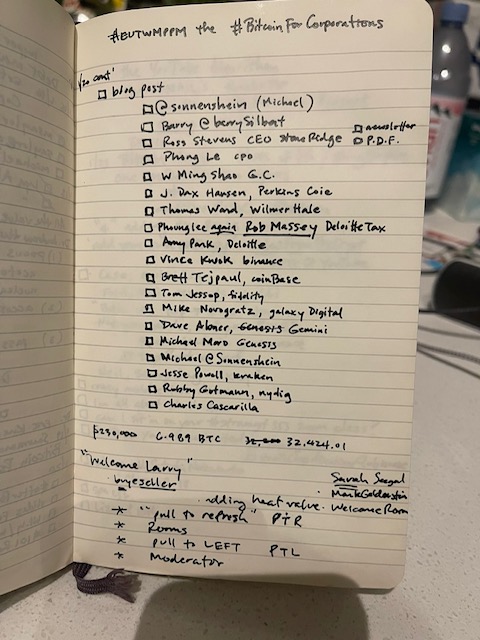 #EUTWMPPM the #BitcoinForCorporations
1/20 cont'
blog post
@sonnenshein (Michael)
Barry @barrySilbert
Ross Stevens CEO stoneRidge
newsletter
P.D.F.
Phong Le CFO
W Ming Shao G.C.
J. Dax Hansen, Perkins Coie
Thomas Ward, WilmerHale
Phounglee again Rob Massey Deloitte Tax
Amy Park, Deloitte
Vince Kwok binance
Brett Tejpaul, coinBase
Tom Jessop, fidelity
Mike Novogratz, galaxy Digital
Dave Abner, Genesis Gemini
Michael Moro Genesis
Michael @Sonnenshein
Jesse Powell, kraken
Robby Gutmann, nydig
Charles Cascarilla
$230,000 6.989 BTC 32,424.01
"Welcome Larry"
buyeseller
Sarah Segal
Mark Goldenstin
adding heat valve. Welcome Room
* "pull to refresh" PTR
* Rooms
* pull to LEFT PTL
* Moderator